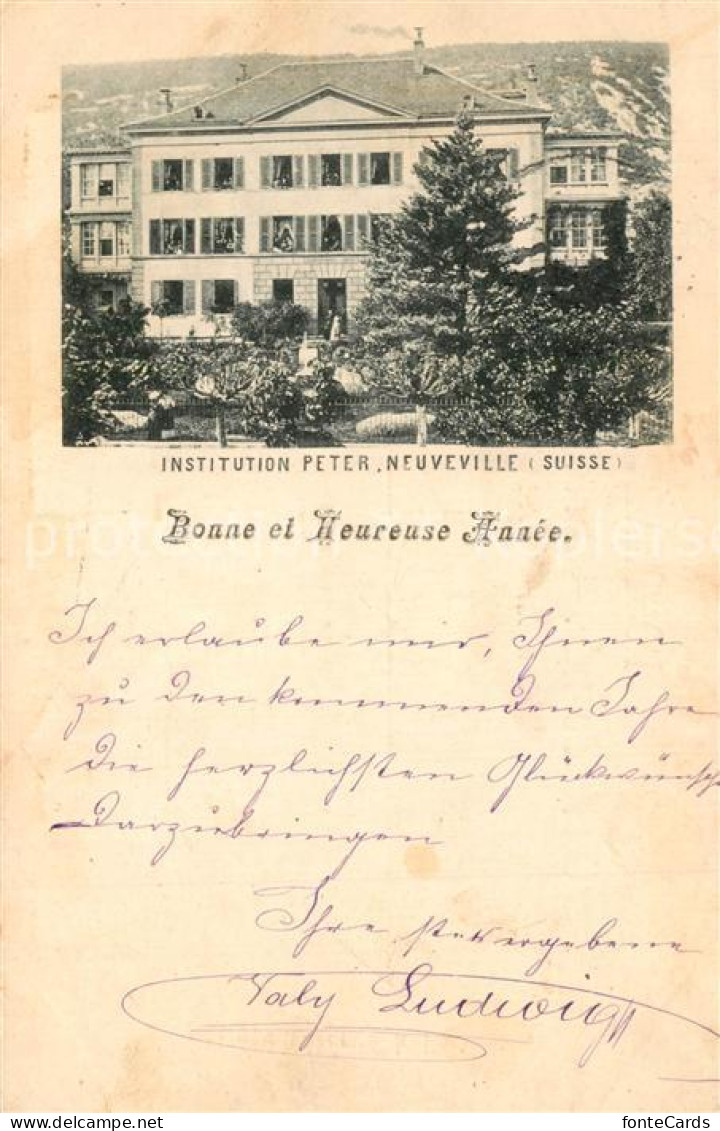 INSTITUTION PETER, NEUVEVILLE (SUISSE)
Bonne et Heureuse Année.
Ich erlaube mir, Ihnen
zu den kommenden Jahre
die herzlichsten Glückwünsche
darzubringen
Ihre stets ergebene
Valy Ludwig
My-Postcard.com
fonteCards